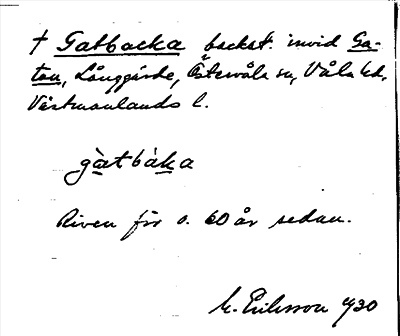 † Gatbacka backst. invid Ga-
tan, Långgärde, Östervåla sn, Våla hd,
Västmanlands l.
gàtbàka
Riven för o. 60 år sedan.
M. Eriksson 1930